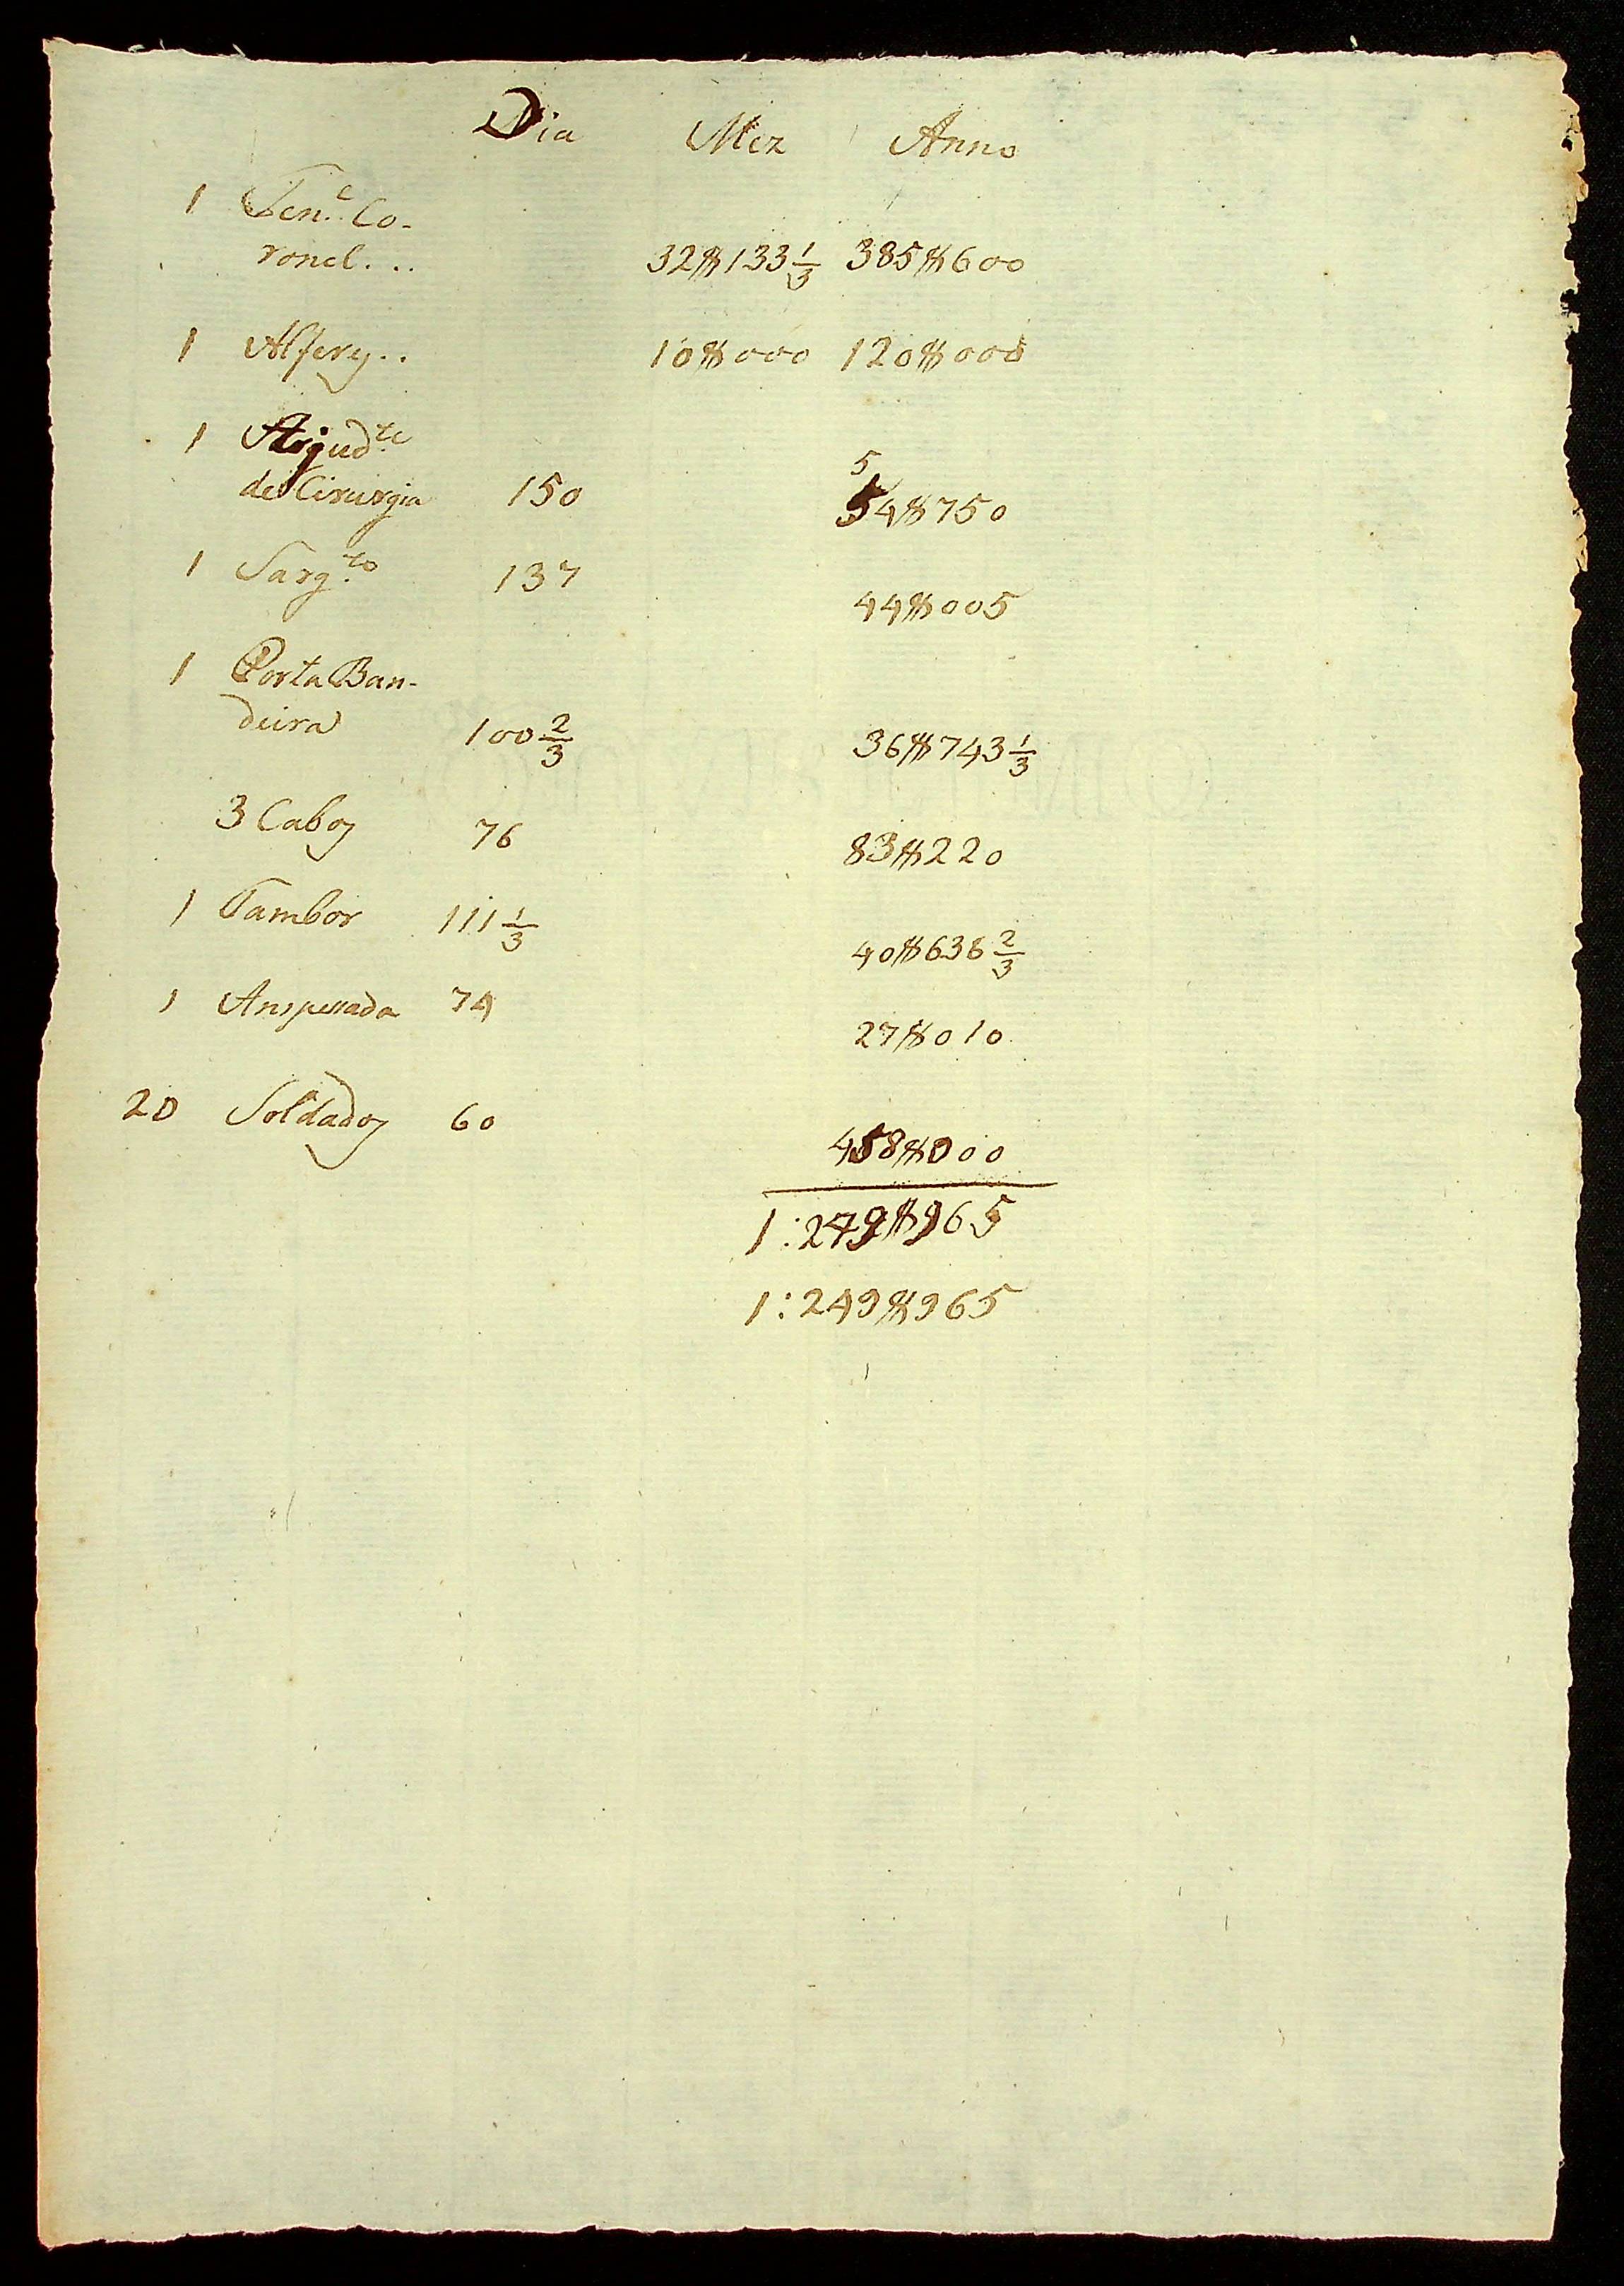 Dia Mez Anno
1 Ten.e Co-
ronel... 32$133 1/3 385$600
1 Alferes.. 10$000 120$000
1 Ajud.te
5
de Cirurgia 150 54$750
1 Sarg.to 137
44$005
1 Porta Ban-
deira 100 2/3 36$743 1/3
3 Cabos 76 83$220
1 Tambor 111 1/3 40$636 2/3
1 Anspessada 74 27$010
20 Soldados 60
458$000
1:249$965
1:249$965